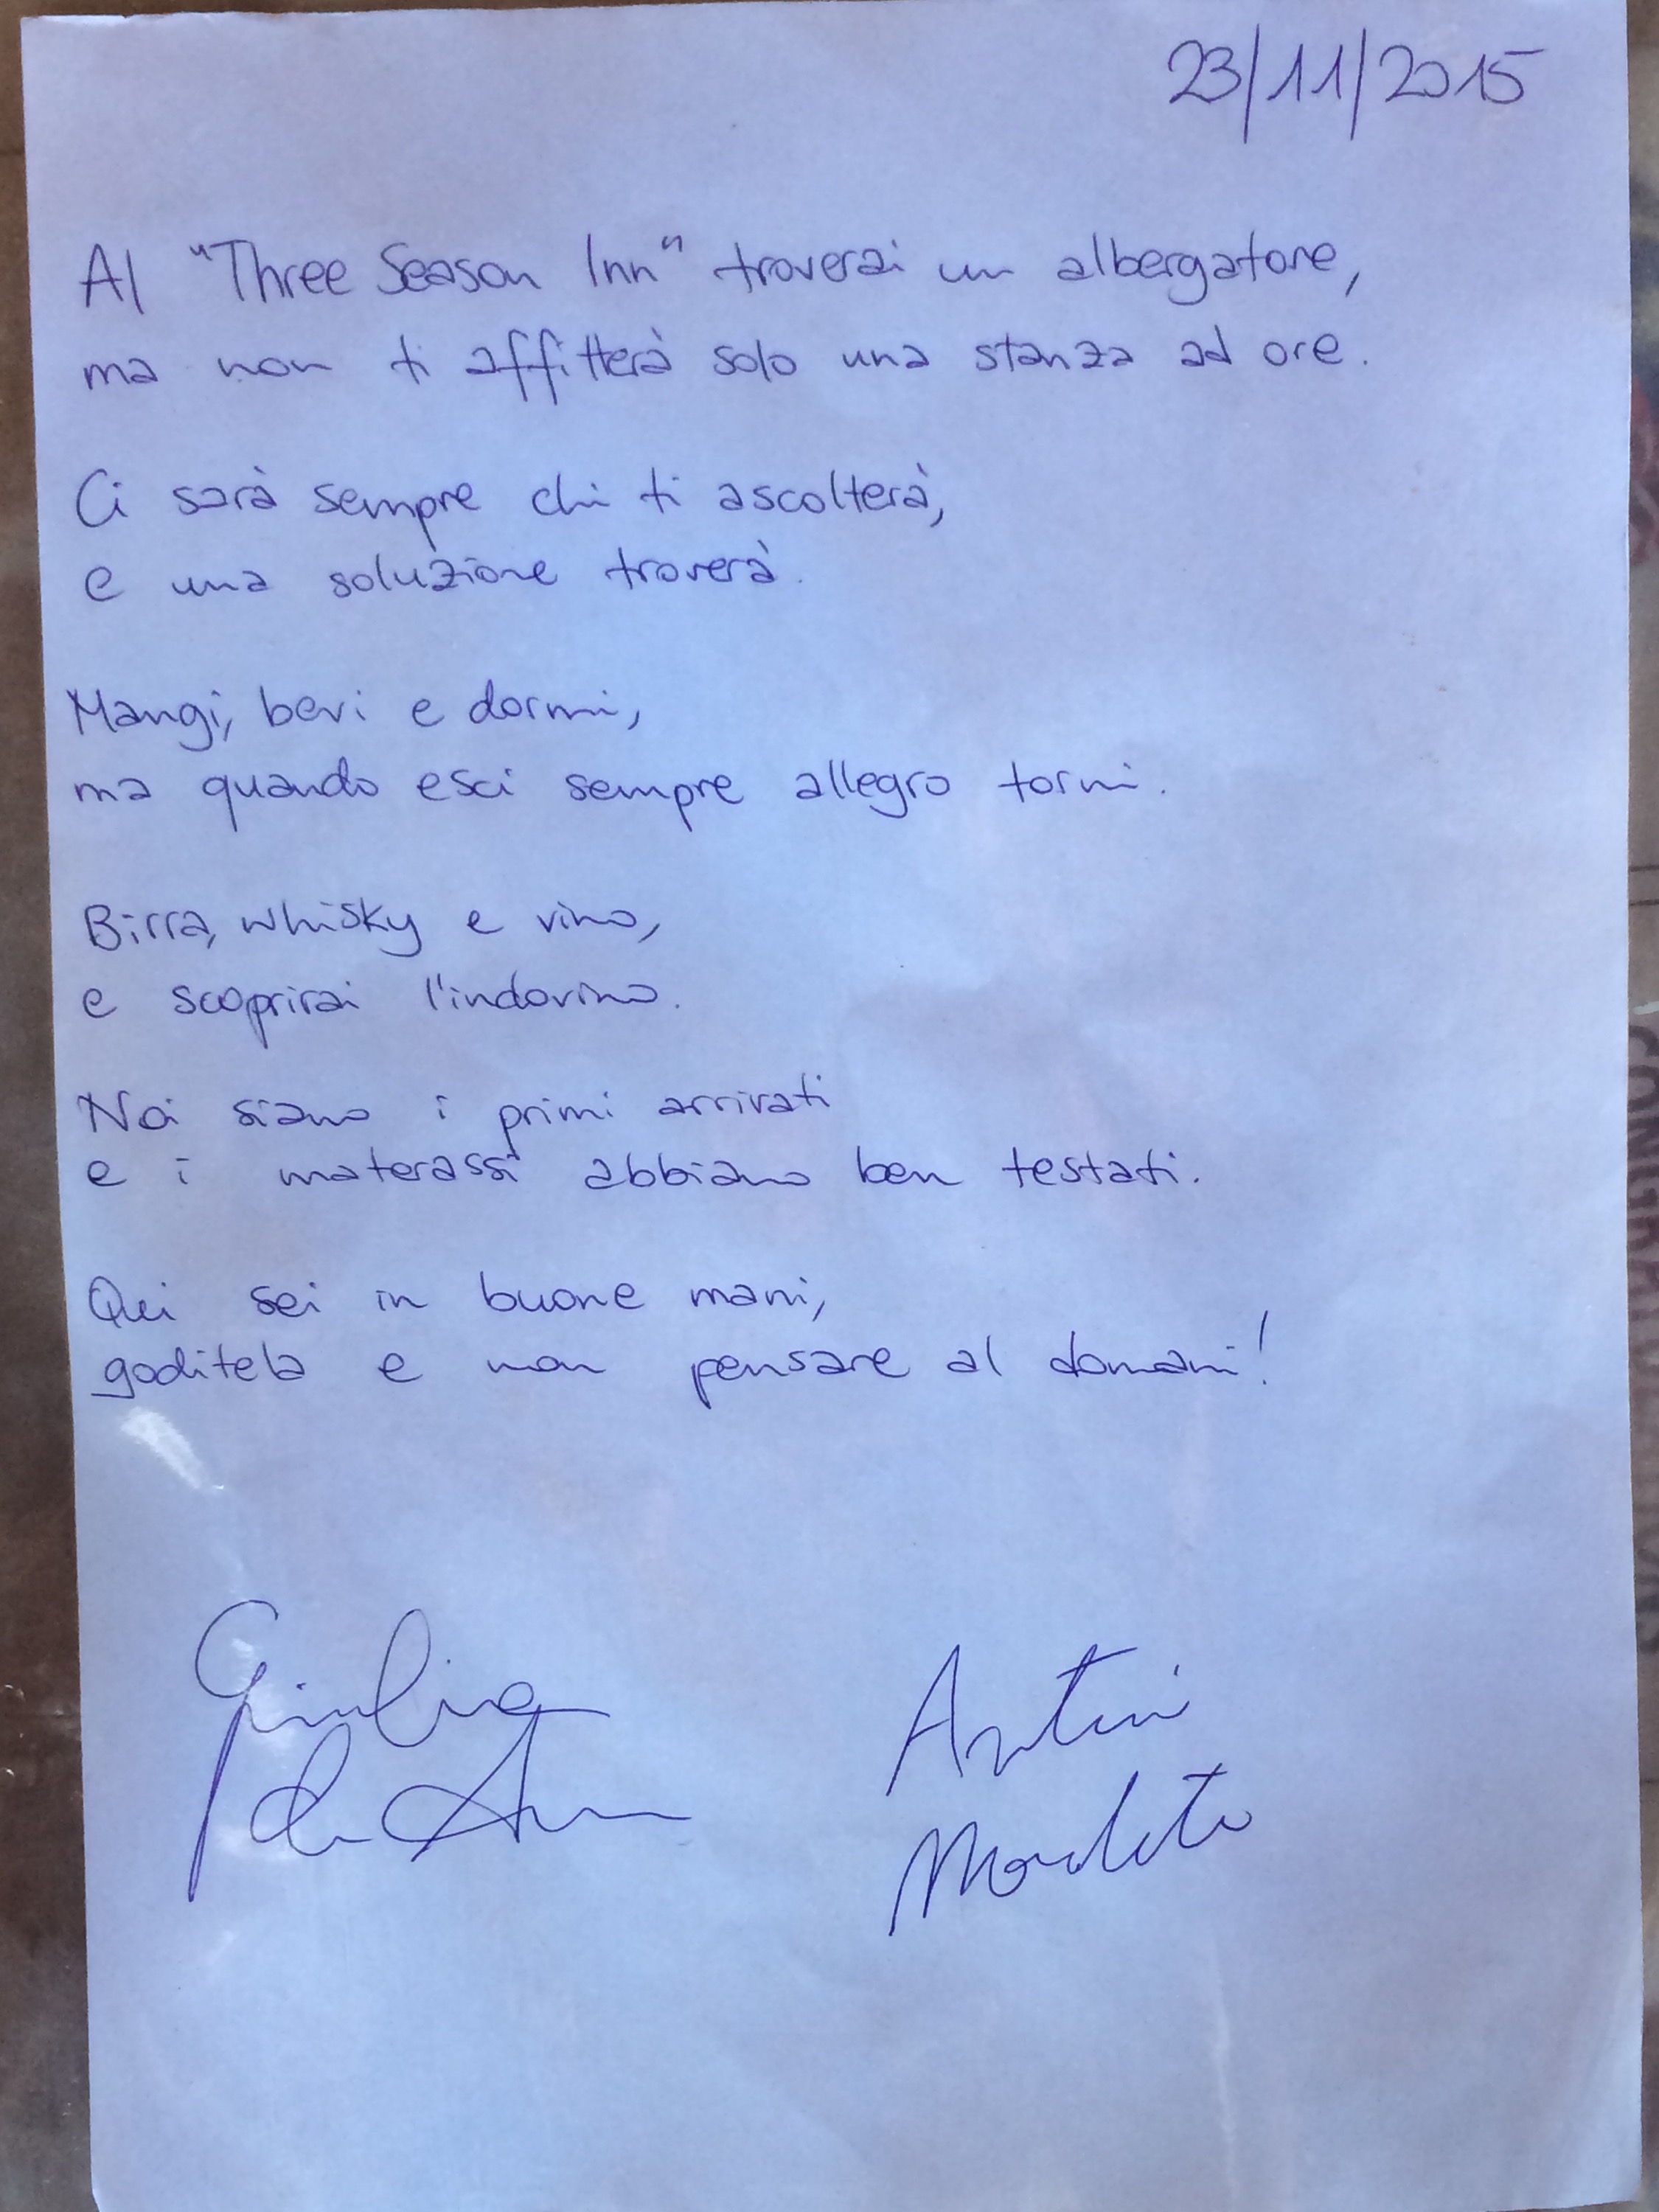 23/11/2015
Al "Three Season Inn" troverai un albergatore,
ma non ti affitterà solo una stanza ad ore.
Ci sarà sempre chi ti ascolterà,
e una soluzione troverà.
Mangi, bevi e dormi,
ma quando esci sempre allegro torni.
Birra, whisky e vino,
e scoprirai l'indovino.
Noi siamo i primi arrivati
e i materassi abbiamo ben testati.
Qui sei in buone mani,
goditela e non pensare al domani!
Giulia